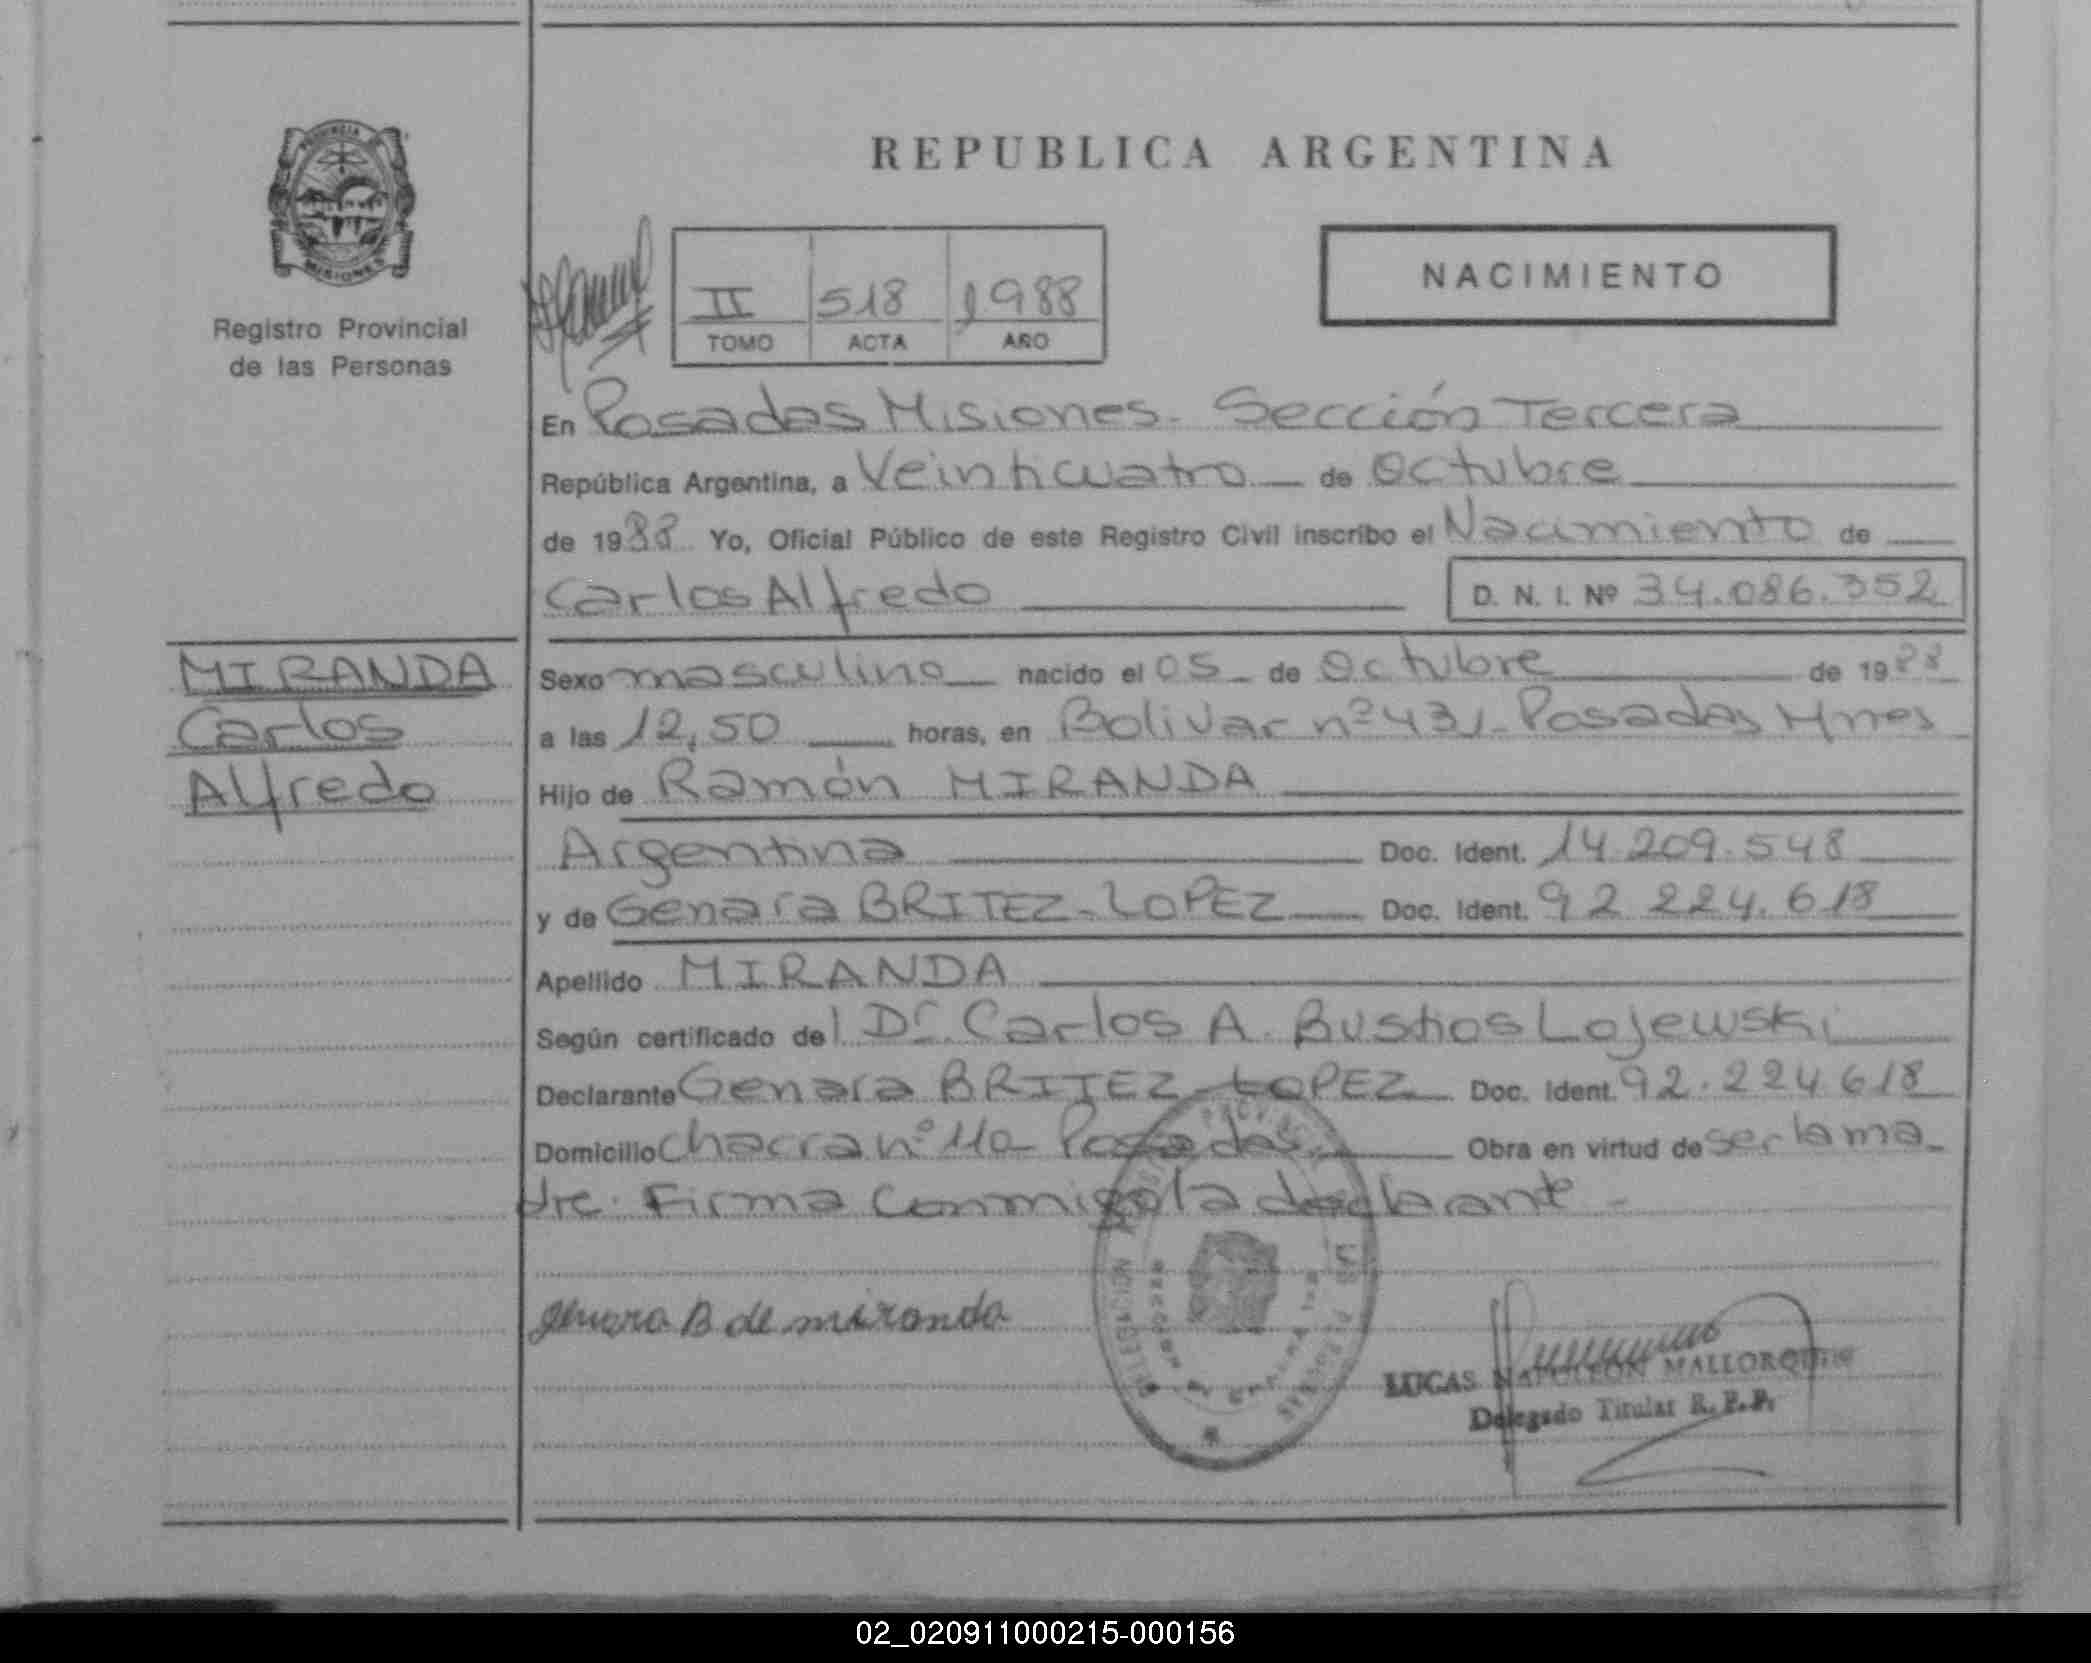 REPUBLICA ARGENTINA
PROVINCIA
MISIONES
Registro Provincial
de las Personas
II 518 1988
TOMO ACTA AÑO
NACIMIENTO
En Posadas Misiones. Sección Tercera
República Argentina, a Veinticuatro de Octubre
de 1988 Yo, Oficial Público de este Registro Civil inscribo el Nacimiento de
Carlos Alfredo D. N. I. Nº 34.086.352
MIRANDA
Carlos
Alfredo
Sexo masculino nacido el 05 de Octubre de 1988
a las 12,50 horas, en Bolivar nº 431- Posadas Mnes
Hijo de Ramón MIRANDA
Argentina Doc. Ident. 14.209.548
y de Genara BRITEZ-LOPEZ Doc. Ident. 92 224.618
Apellido MIRANDA
Según certificado del Dr. Carlos A. Bustios Lojewski
Declarante Genara BRITEZ-LOPEZ Doc. Ident. 92.224.618
Domicilio Chacra nº 110- Posadas Obra en virtud de ser la ma-
dre. Firma conmigo la declarante -
genara B de miranda
LUCAS NAPOLEON MALLORQUIN
Delegado Titular R. P. P.
02_020911000215-000156